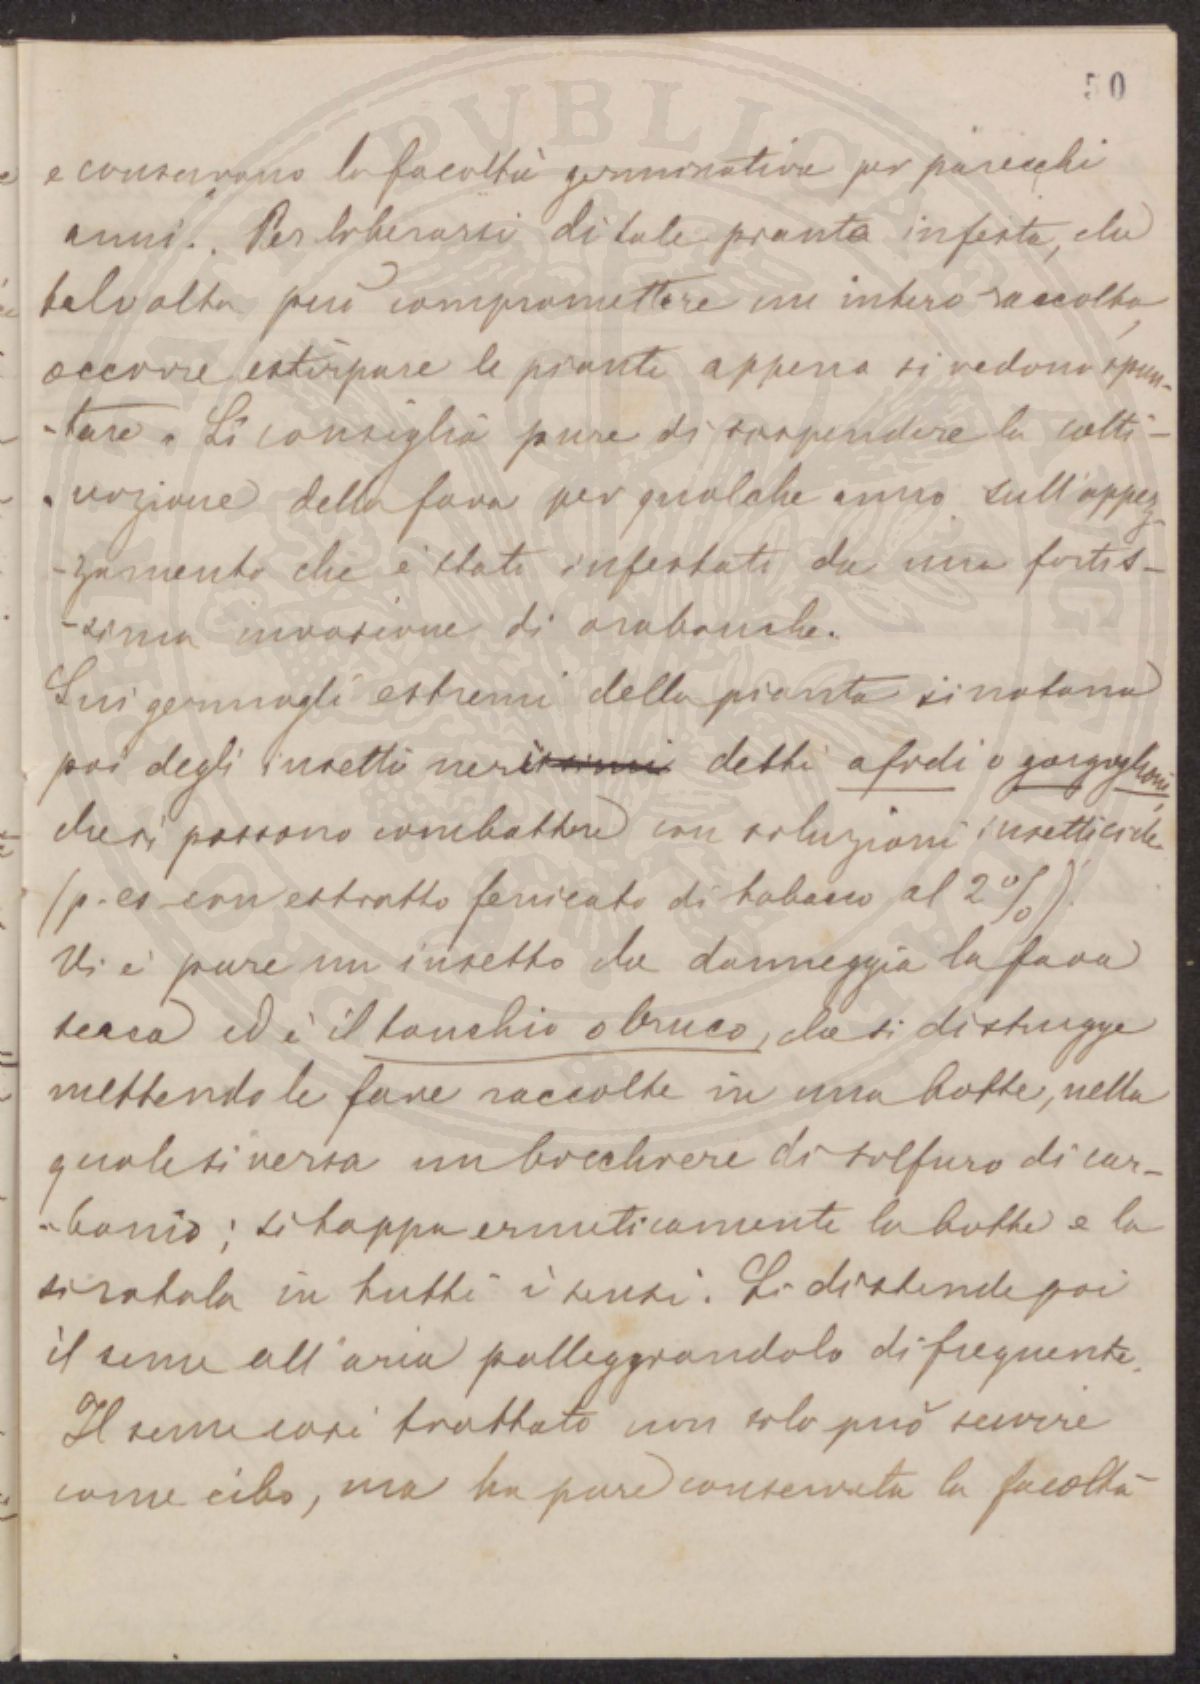 50
e conservano la facoltà germinativa per parecchi
anni. Per liberarsi di tale pianta infesta, che
talvolta può compromettere un intero raccolto,
occorre estirpare le piante appena si vedono spun-
-tare. Si consiglia pure di sospendere la colti-
-vazione della fava per qualche anno sull'appez-
-zamento che è stato infestato da una fortis-
-sima invasione di orobanche.
Sui germogli estremi della pianta si notano
poi degli insetti nerissimi detti afidi o gorgoglioni,
che si possono combattere con soluzioni insetticide
(p. es. con estratto fenicato di tabacco al 2%).
Vi è pure un insetto che danneggia la fava
secca ed è il tonchio o bruco, che si distrugge
mettendo le fave raccolte in una botte, nella
quale si versa un bicchiere di solfuro di car-
-bonio; si tappa ermeticamente la botte e la
si rotola in tutti i sensi. Si distende poi
il seme all'aria palleggiandolo di frequente.
Il seme così trattato non solo può servire
come cibo, ma ha pure conservata la facoltà